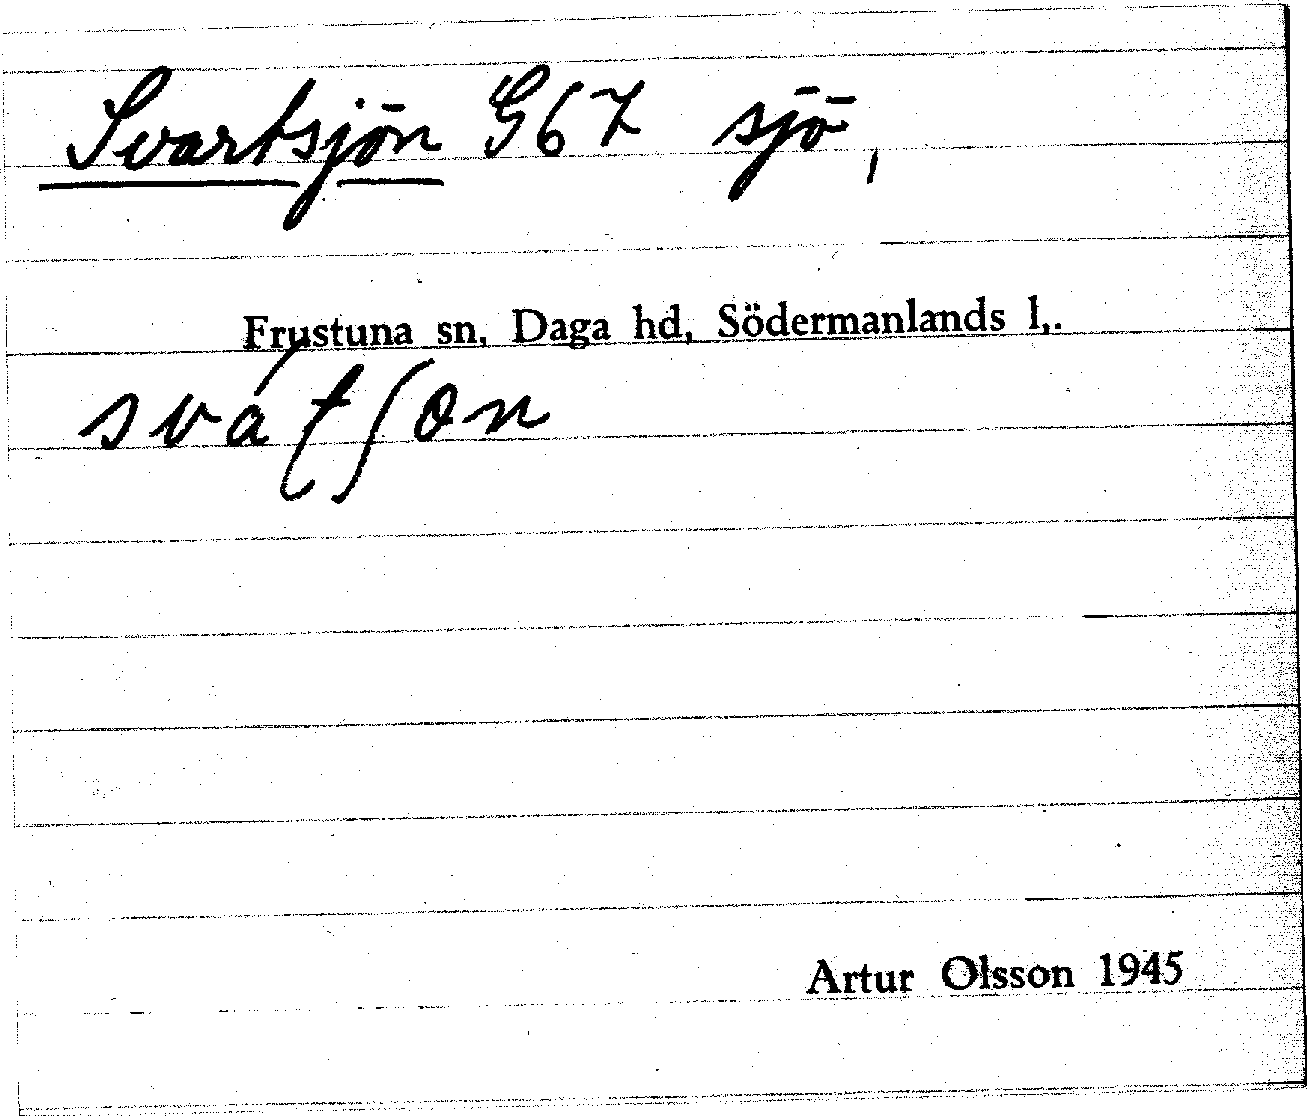 Svartsjön G67 sjö,
Frustuna sn, Daga hd, Södermanlands l,.
sváʈʃon
Artur Olsson 1945